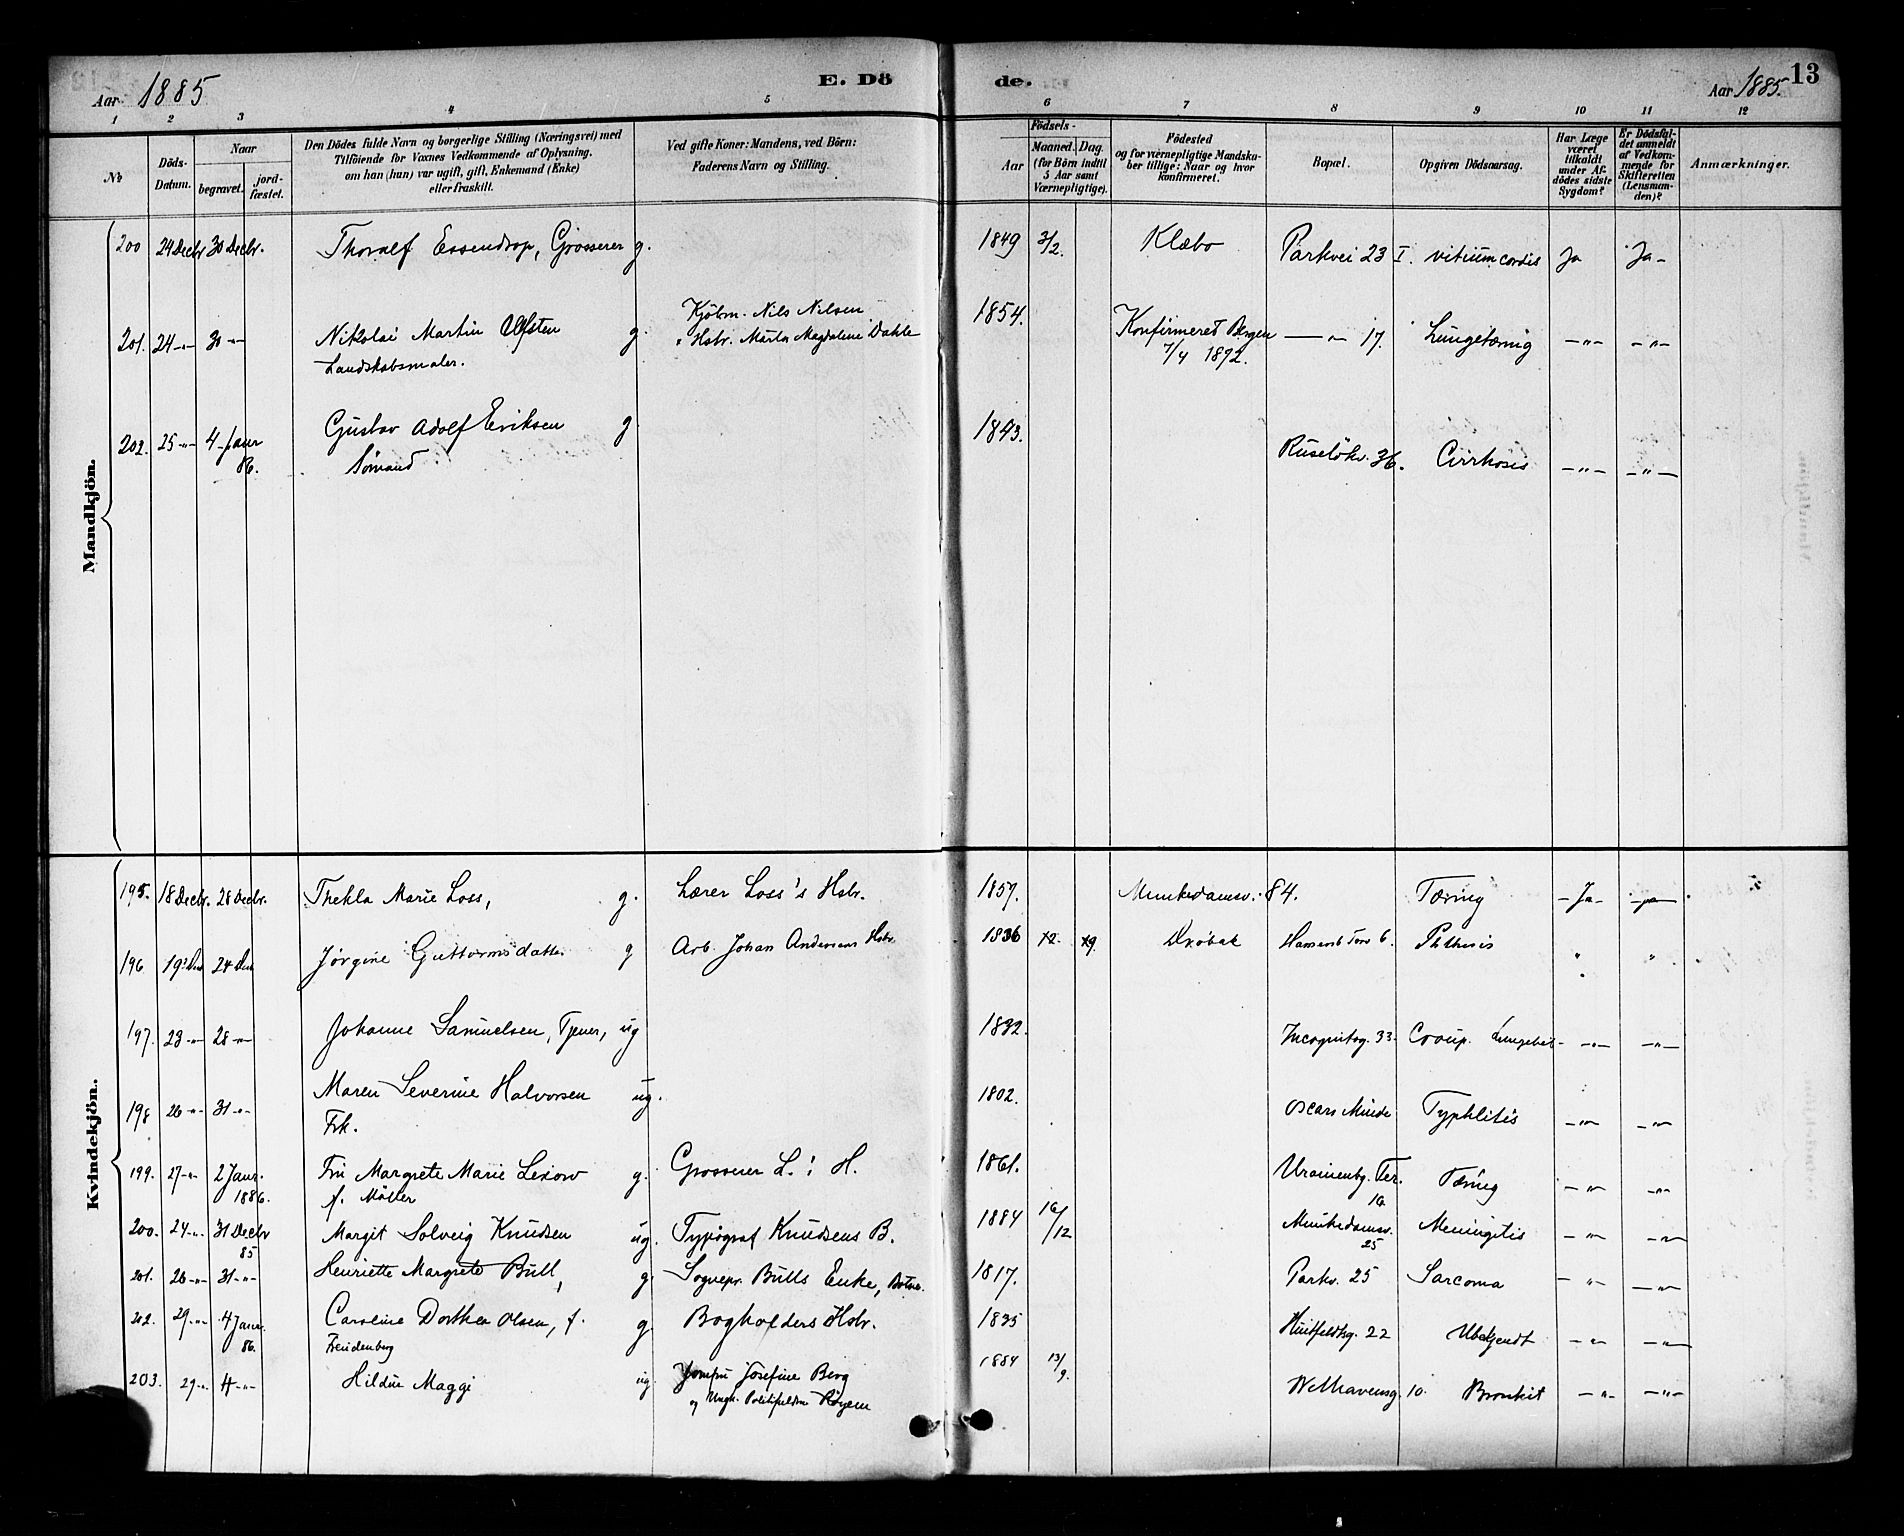 Aar 1885
E. Dö
de.
Aar 1885.
13
1 2 3 4 5 6 7 8 9 10 11 12
№
Döds-
Datum.
Naar
begravet.
jord-
fæstet.
Den Dödes fulde Navn og borgerlige Stilling (Næringsvei) med
Tilföiende for Voxnes Vedkommende af Oplysning,
om han (hun) var ugift, gift, Enkemand (Enke)
eller fraskilt.
Ved gifte Koner: Mandens, ved Börn:
Faderens Navn og Stilling.
Födsels-
Aar
Maaned. Dag.
(for Börn indtil
5 Aar samt
Værnepligtige).
Födested
og for værnepligtige Mandska-
ber tillige: Naar og hvor
konfirmeret.
Bopæl.
Opgiven Dödsaarsag.
Har Læge
været
tilkaldt
under Af-
dödes sidste
Sygdom?
Er Dödsfal-
det anmeldt
af Vedkom-
mende for
Skifteretten
(Lensman-
den)?
Anmærkninger.
Mandkjön.
200 24 Decbr 30 Decbr. Thoralf Essendrop, Grosserer g. 1849 3/2. Klæbo Parkvei 23 I. vitium cordis Ja Ja-
Kjöbm. Nils Nilsen
201. 24 -"- 30 -"- Nikolai Martin Ulfsten g. Hsbr. Marta Magdalene Dahle 1854. Konfirmeret Bergen -"- 17. Lungetæring -"- -"-
Landskabsmaler. 7/4 1872.
202. 25 -"- 4 Janr Gustav Adolf Eriksen g 1843. Ruselökv. 36. Cirrhosis -"- -"-
86. Sömand
Kvindekjön.
195. 18 Decbr. 28 Decbr. Thekla Marie Loss, g. Lærer Loss's Hsbr. 1857. Munkedamsv. 84. Tæring -Ja- -ja-
196 19 24 Jørgine Guttormsdatter g Arb. Johan Andersens Hsbr. 1836 Drøbak 6. Phthisis " "
197. 23 -"- 28 -"- Johanne Samuelsen, Tjener, ug 1832. Incognitog. 33. Croup. -"- -"-
198 26 -"- 31 -"- Maren Severine Halvorsen ug. 1802. Oscars Minde Typhlitis -"- -"-
Frk.
199. 27 -"- 2 Janr. Fru Margrete Marie Lexow g. Grosserer L.: H. 1861. Uranienbg. Ter. Tæring -"- -"-
1886. f. Möller 16
200. 24 -"- 31 Decbr Margit Solveig Knudsen ug. Typograf Knudsens B. 1884 16/12 Munkedamsv. Meningitis -"- -"-
85 25
201. 26 -"- 31 -"- Henriette Margrete Bull, g Sognepr. Bulls Enke, 1817. Parkv. 25 Sarcoma -"- -"-
202. 29 -"- 4 Janr. Caroline Dorthea Olsen, f. g. Bogholders Hsbr. 1835 Huitfeldtsg. 22 Ubekjendt -"- -"-
86. Freudenberg
203. 29 -"- 4 -"- Hildur Maggi ug Jomfru Josefine Berg 1884 13/9. Welhavensg. 10. Bronkit -"- -"-
og Ungk. Røyem